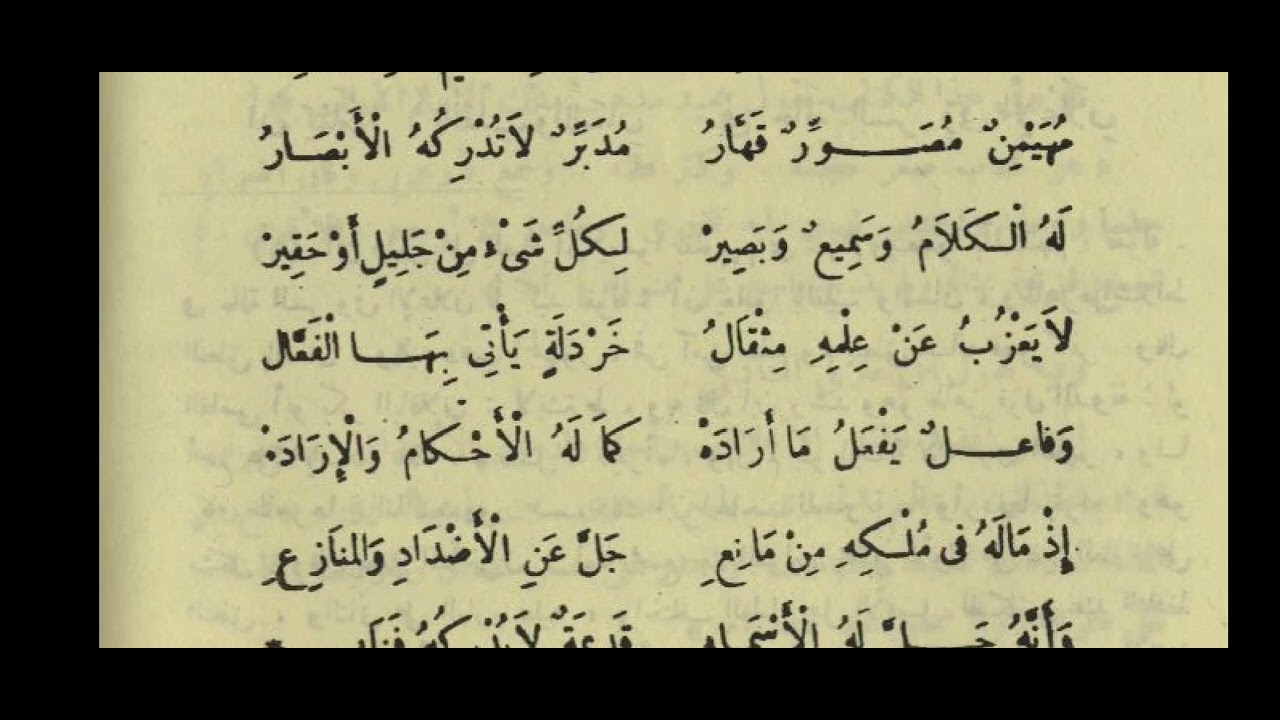 مُهَيْمِنٌ مُصَـــوِّرٌ قَهَّارُ مُدَبِّرٌ لاَتُدْرِكُهُ الْأَبْصَارُ
لَهُ الْكَلاَمُ وَسَمِيعٌ وَبَصِيرْ لِكُلِّ شَىْءٍ مِنْ جَلِيلٍ أَوْ حَقِيرْ
لاَيَعْزُبُ عَنْ عِلْمِهِ مِثْقَالُ خَرْدَلَةٍ يَأْتِى بِهَـــا الْفَعَّالُ
وَفَاعِـــلٌ يَفْعَلُ مَا أَرَادَهْ كَمَا لَهُ الْأَحْكَامُ وَالْإِرَادَهْ
إِذْ مَالَهُ فِى مُلْكِهِ مِنْ مَانِعِ جَلَّ عَنِ الْأَضْدَادِ وَالْمنَازِعِ
وَأَنَّهُ لَهُ